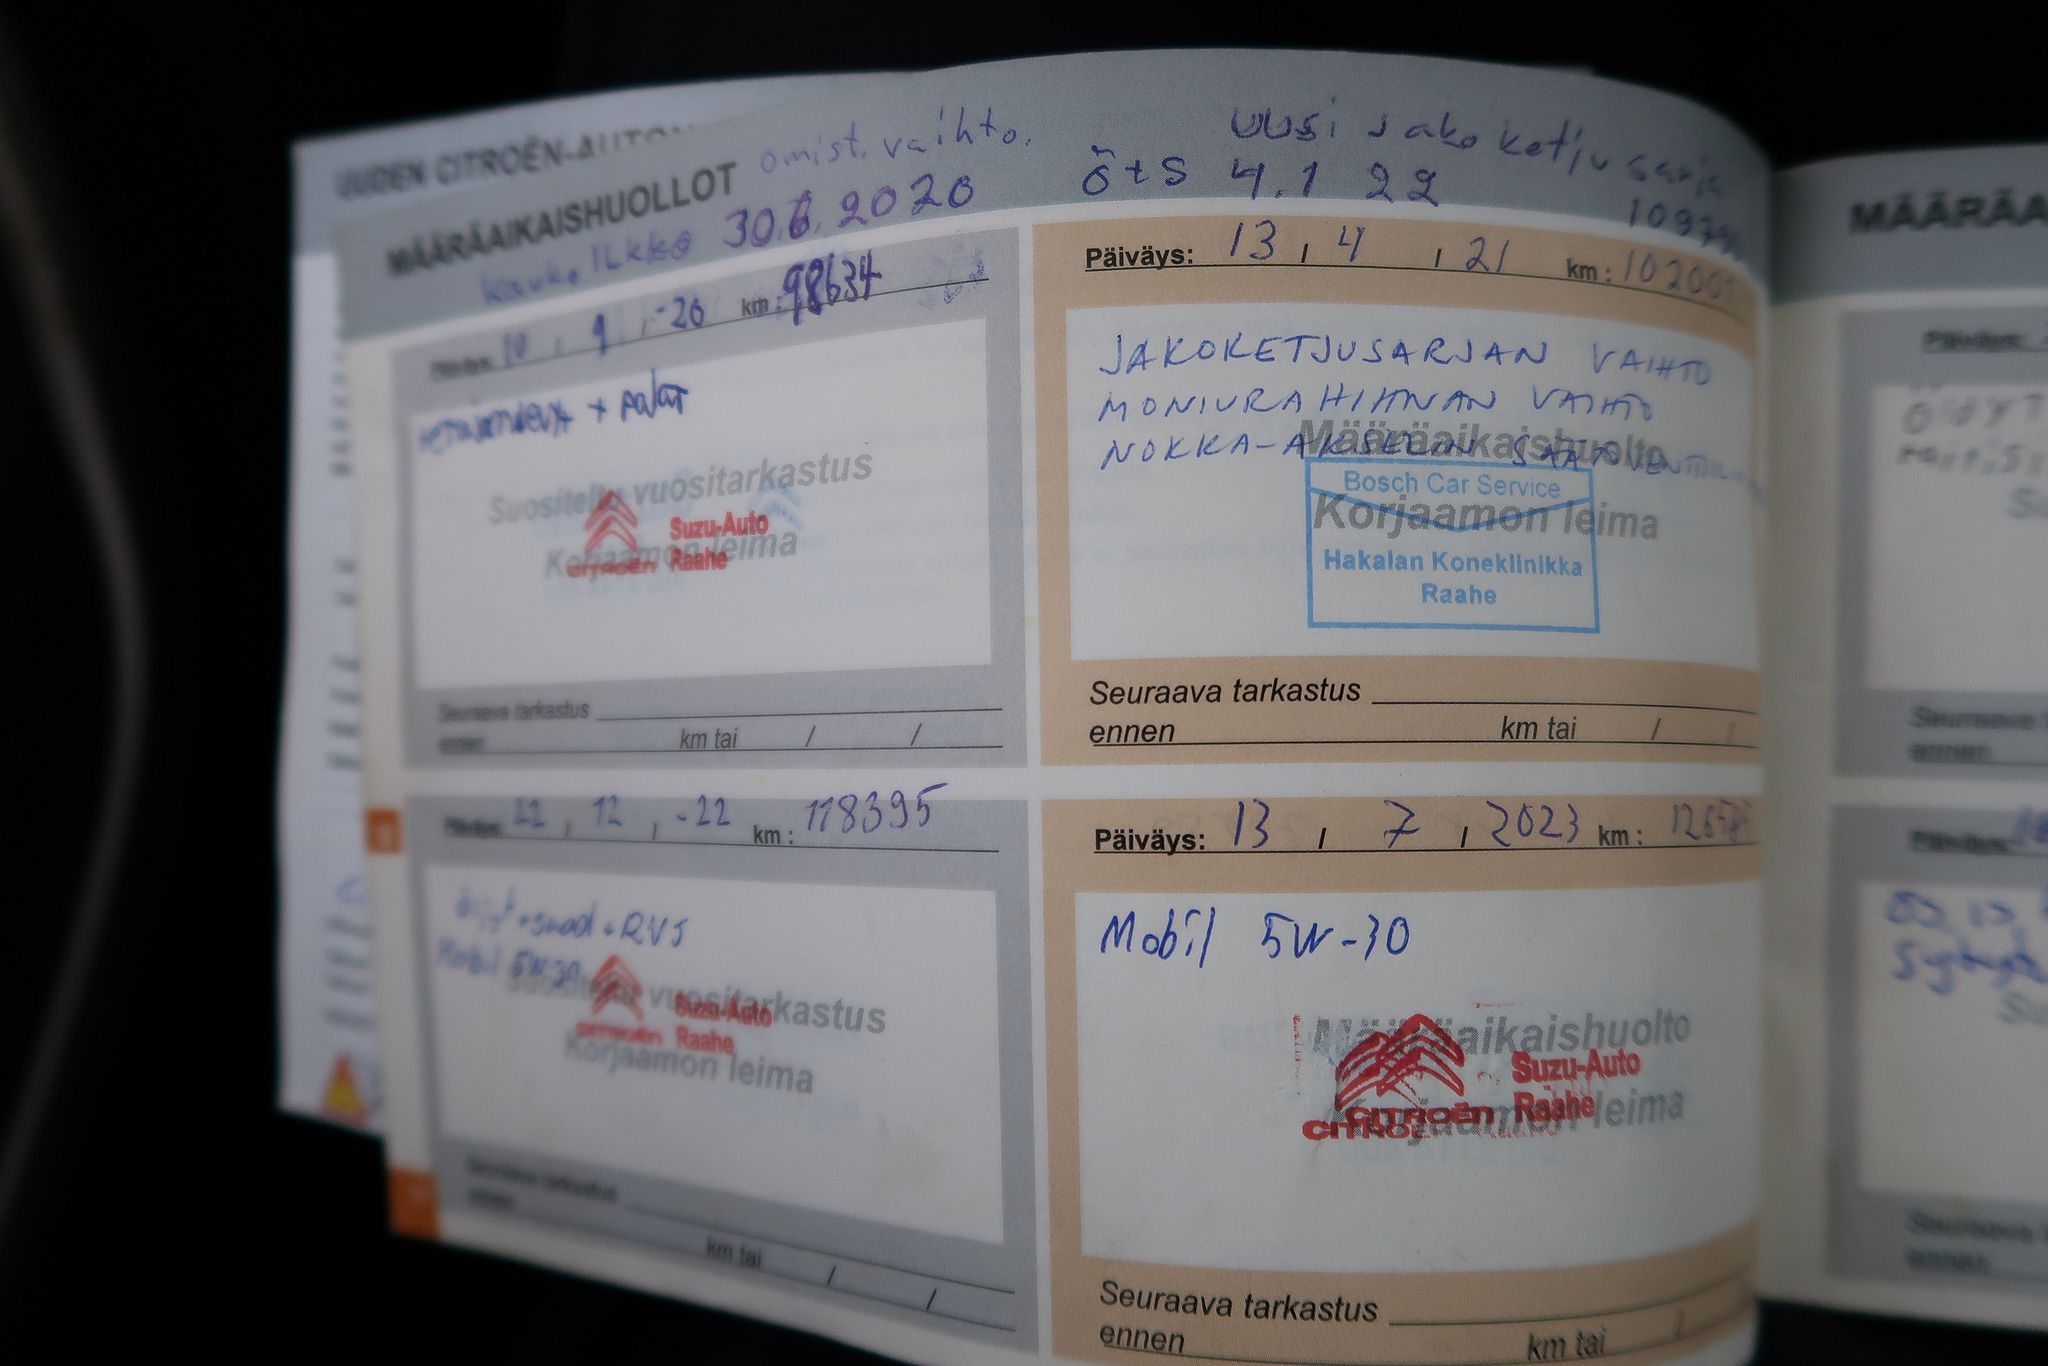 UUDEN CITROËN-AUTON
MÄÄRÄAIKAISHUOLLOT
omist. vaihto.
Ilkka 30.6.2020
uusi jakoketjusarja
ö+s 4.1 22
Päiväys: 10 , 9 , -20 km : 98634
+ palat
Suositeltu vuositarkastus
Korjaamon leima
CITROËN Suzu-Auto
Raahe
Seuraava tarkastus
ennen km tai / /
Päiväys: 13 , 4 , 21 km : 102001
JAKOKETJUSARJAN VAIHTO
MONIURAHIHNAN VAIHTO
NOKKA-AKSELIN
Määräaikaishuolto
Korjaamon leima
Bosch Car Service
Hakalan Koneklinikka
Raahe
Seuraava tarkastus
ennen km tai / /
Päiväys: 22 , 12 , -22 km : 118395
öljyt + suod + RVS
Mobil 5W-30
Suositeltu vuositarkastus
Korjaamon leima
CITROËN Suzu-Auto
Raahe
Seuraava tarkastus
ennen km tai / /
Päiväys: 13 , 7 , 2023 km :
Mobil 5W-30
Määräaikaishuolto
Korjaamon leima
CITROËN Suzu-Auto
Raahe
Seuraava tarkastus
ennen km tai /
MÄÄRÄA